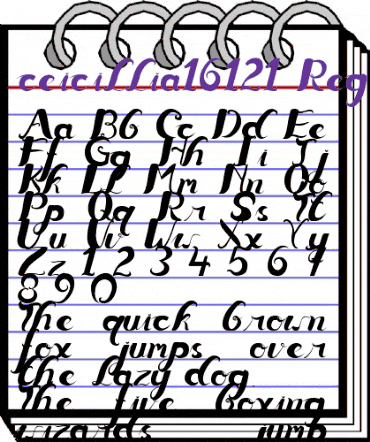 ceicillia16121 Reg
Aa Bb Cc Dd Ee
Ff Gg Hh Ii Jj
Kk Ll Mm Nn Oo
Pp Qq Rr Ss Tt
Uu Vv Ww Xx Yy
Zz 1 2 3 4 5 6 7
8 9 0
The quick brown
fox jumps over
the lazy dog
The five boxing
wizards jump